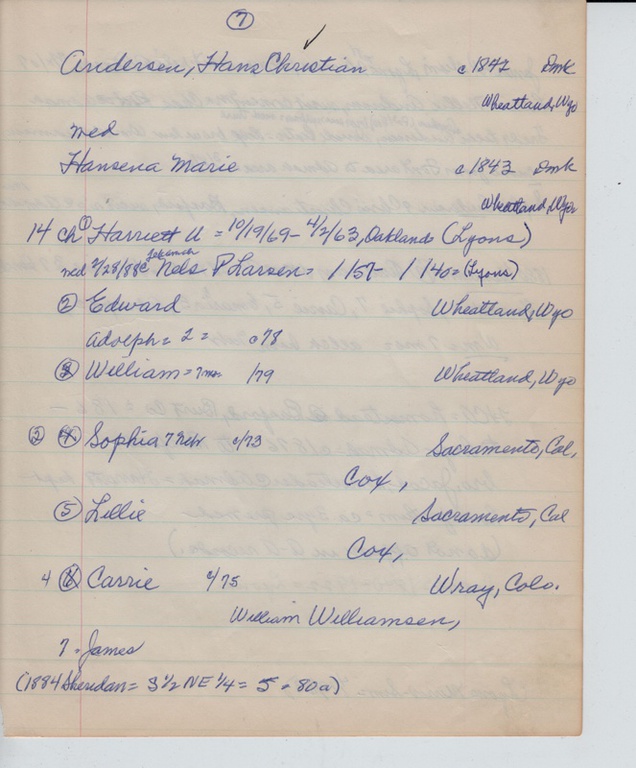 7 ✓
Andersen, Hans Christian c 1847 Dmk
Wheatland, Wyo
med
Hansena Marie c 1843 Dmk
Wheatland, Wyo
14 ch ① Harriett U = 10/19/69 - 4/2/63, Oakland (Lyons)
med 2/28/88 @ Tekamah Nels P Larsen = 1/57- 1/40 = (Lyons)
② Edward Wheatland, Wyo
Adolph = 2 = c78
③ William = /79 Wheatland, Wyo
② ④ Sophia 7 Nebr c/73 Sacramento, Cal,
Cox,
⑤ Lillie Sacramento, Cal
Cox,
4 ⑥ Carrie c/75 Wray, Colo.
William Williamsen,
7. James
(1884 Sheridan = S 1/2 NE 1/4 = 5 - 80a)